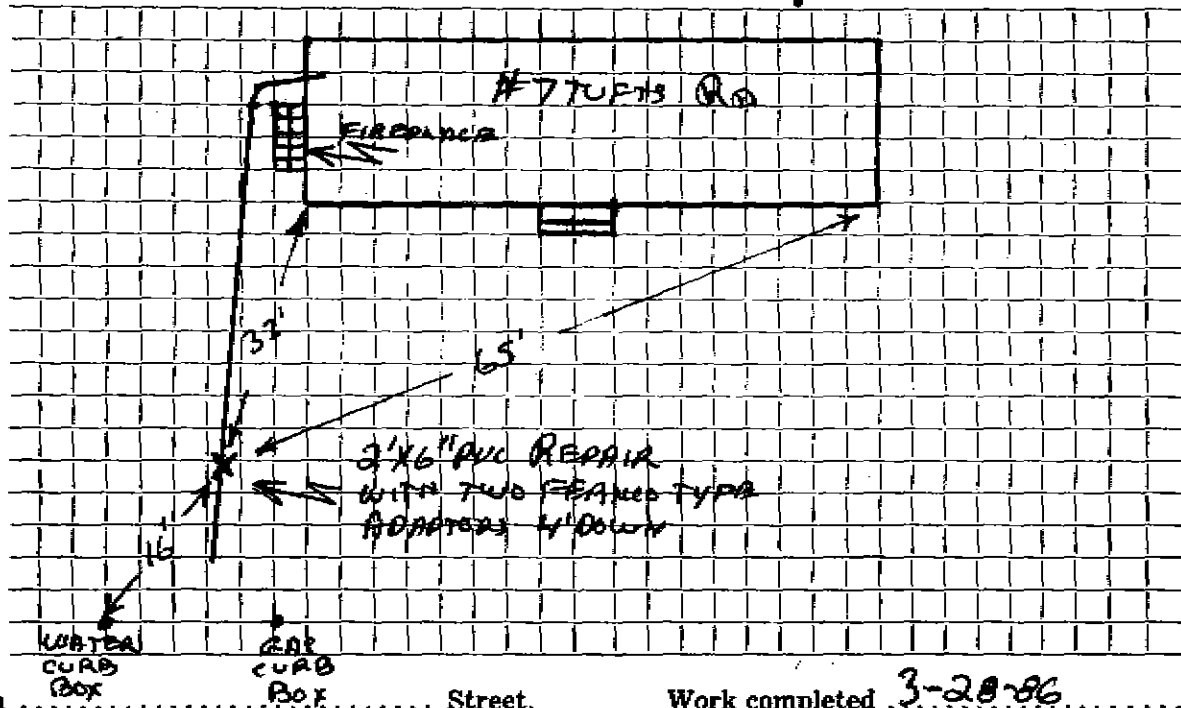 #7 TUFTS RD
FIREPLACE
37'
65'
2'X6" PVC REPAIR
WITH TWO FEANCO TYPE
ADAPTORS 4' DOWN
16'
WATER
CURB
BOX
GAS
CURB
BOX
Street. Work completed 3-28-86